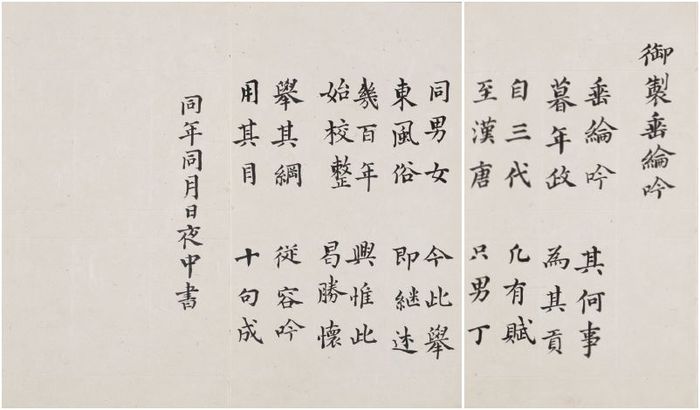 御製垂綸吟
垂綸吟 其何事
暮年政 為其貢
自三代 凡有賦
至漢唐 只男丁
同男女 今此舉
東風俗 即継述
幾百年 興惟此
始校整 曷勝懷
舉其綱 從容吟
用其目 十句成
同年同月日夜中書